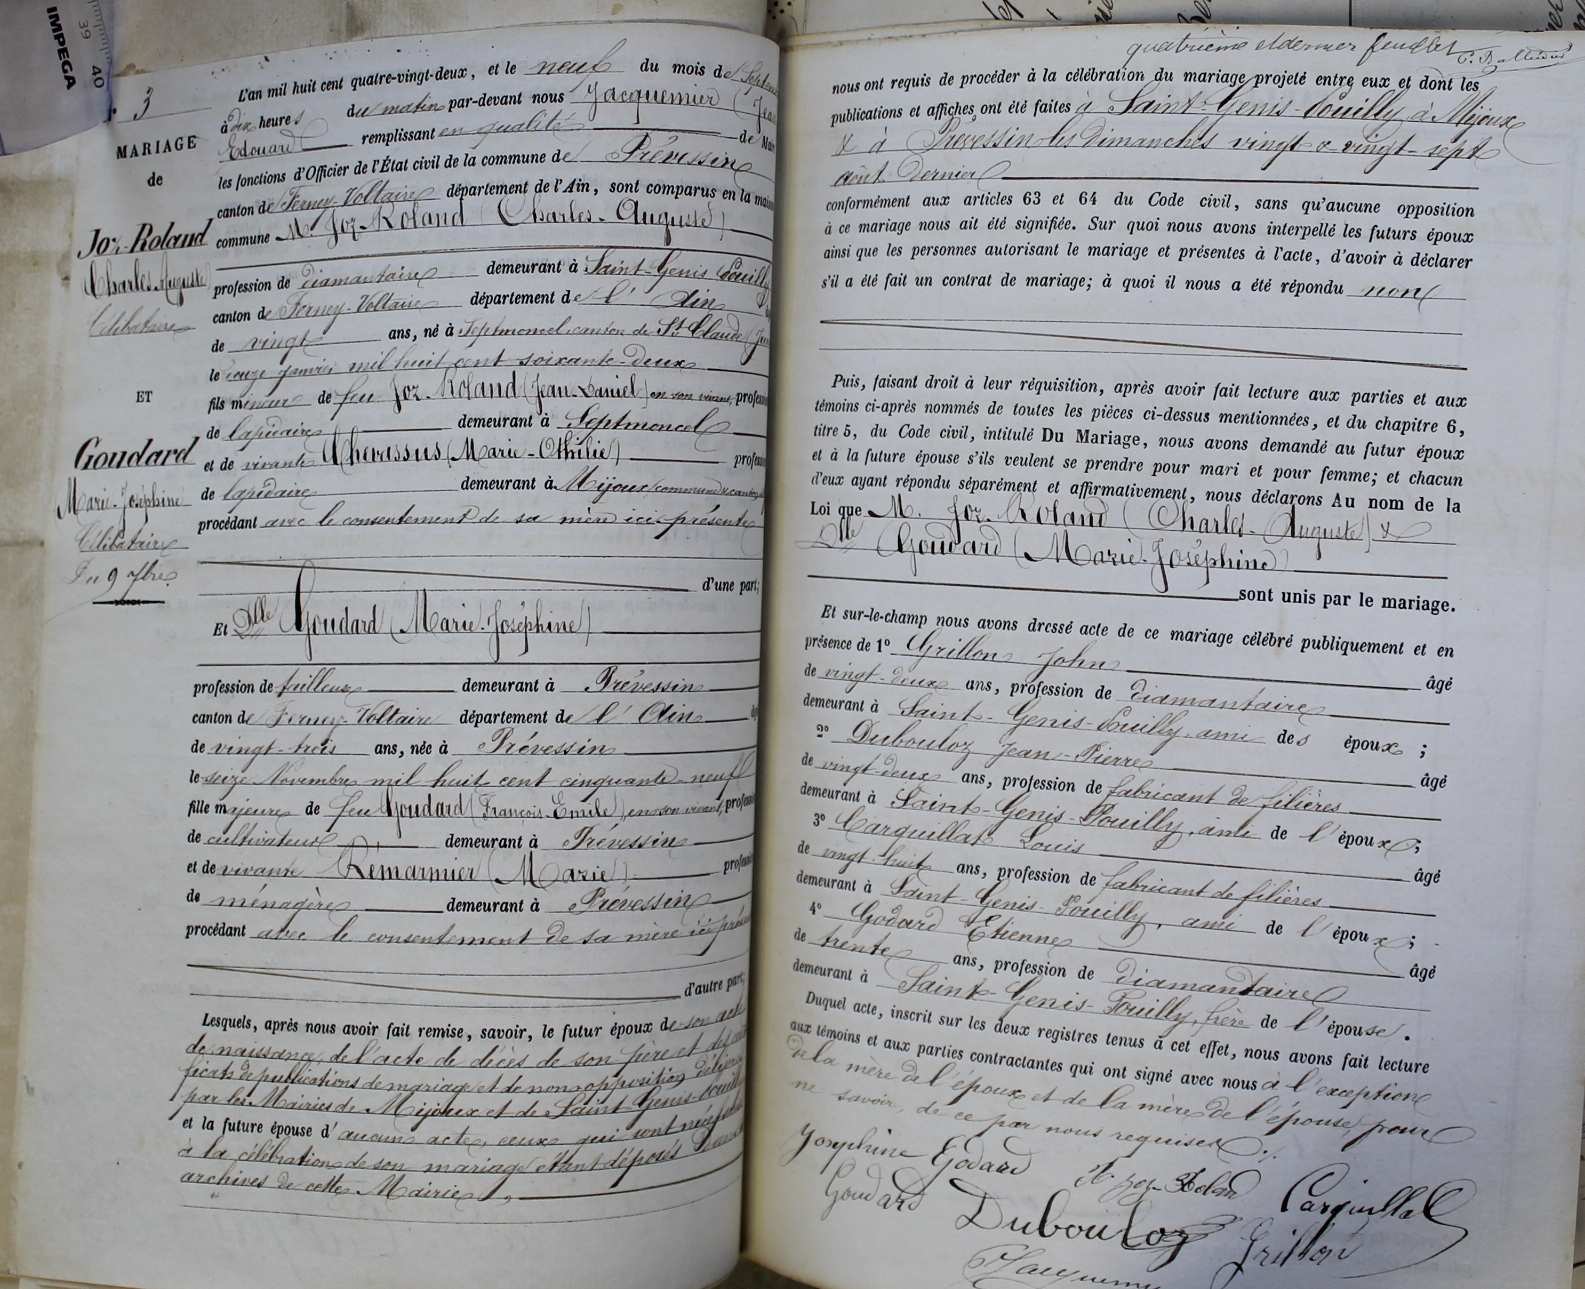 IMPEGA
39
40
3
MARIAGE
de
Joz-Roland
Charles Auguste
Célibataire
ET
Goudard
Marie-Joséphine
Célibataire
Du 9 7bre
L'an mil huit cent quatre-vingt-deux, et le neuf du mois de Septem
à dix heures du matin par-devant nous Jacquemier (Jean
Edouard remplissant en qualité de Mai
les fonctions d'Officier de l'État civil de la commune de Prévessin
canton de Ferney-Voltaire département de l'Ain, sont comparus en la maison
commune M. Joz-Roland (Charles-Auguste)
profession de diamantaire demeurant à Saint-Genis Pouilly
canton de Ferney-Voltaire département de l'Ain
de vingt ans, né à Septmoncel, canton de St Claude (Jura
le janvier mil huit cent soixante-deux
fils mineur de feu Joz-Roland (Jean Daniel) en son vivant, profession
de lapidaire demeurant à Septmoncel
et de vivante Chevassus (Marie-Othilie) profession
de lapidaire demeurant à Mijoux commune
procédant avec le consentement de sa mère ici présente
d'une part;
Et Dlle Goudard (Marie-Joséphine)
profession de demeurant à Prévessin
canton de Ferney-Voltaire département de l'Ain
de vingt-trois ans, née à Prévessin
le seize Novembre mil huit cent cinquante-neuf
fille majeure de feu Goudard (François-Emile), en son vivant, profession
de cultivateur demeurant à Prévessin
et de vivante Remarmier (Marie) profession
de ménagère demeurant à Prévessin
procédant avec le consentement de sa mère ici présente
d'autre part;
Lesquels, après nous avoir fait remise, savoir, le futur époux de son acte
de naissance, de l'acte de décès de son père et des certi
ficats de publications de mariage et de non opposition délivrés
par les Mairies de Mijoux et de Saint-Genis-Pouilly
et la future épouse d'aucun acte, ceux qui sont nécessaires
à la célébration de son mariage étant déposés dans les
archives de cette Mairie,
quatrième et dernier feuillet
nous ont requis de procéder à la célébration du mariage projeté entre eux et dont les
publications et affiches ont été faites à Saint-Genis-Pouilly, à Mijoux
& à Prévessin les dimanches vingt & vingt-sept
août dernier
conformément aux articles 63 et 64 du Code civil, sans qu'aucune opposition
à ce mariage nous ait été signifiée. Sur quoi nous avons interpellé les futurs époux
ainsi que les personnes autorisant le mariage et présentes à l'acte, d'avoir à déclarer
s'il a été fait un contrat de mariage; à quoi il nous a été répondu non
Puis, faisant droit à leur réquisition, après avoir fait lecture aux parties et aux
témoins ci-après nommés de toutes les pièces ci-dessus mentionnées, et du chapitre 6,
titre 5, du Code civil, intitulé Du Mariage, nous avons demandé au futur époux
et à la future épouse s'ils veulent se prendre pour mari et pour femme; et chacun
d'eux ayant répondu séparément et affirmativement, nous déclarons Au nom de la
Loi que M. Joz-Roland (Charles-Auguste) &
Dlle Goudard (Marie-Joséphine)
sont unis par le mariage.
Et sur-le-champ nous avons dressé acte de ce mariage célébré publiquement et en
présence de 1° Grillon John âgé
de vingt-deux ans, profession de diamantaire
demeurant à Saint-Genis-Pouilly, ami des époux;
2° Dubouloz Jean-Pierre âgé
de vingt-deux ans, profession de fabricant de filières
demeurant à Saint-Genis-Pouilly, ami de l'époux;
3° Carquillat Louis âgé
de vingt huit ans, profession de fabricant de filières
demeurant à Saint-Genis-Pouilly, ami de l'époux;
4° Godard Etienne âgé
de trente ans, profession de diamantaire
demeurant à Saint-Genis-Pouilly, frère de l'épouse.
Duquel acte, inscrit sur les deux registres tenus à cet effet, nous avons fait lecture
aux témoins et aux parties contractantes qui ont signé avec nous à l'exception
de la mère de l'époux et de la mère de l'épouse pour
ne savoir, de ce par nous requises
Josephine Godard
Joz-Roland
Carquillat
Goudard
Dubouloz
Grillon
Jacquemier